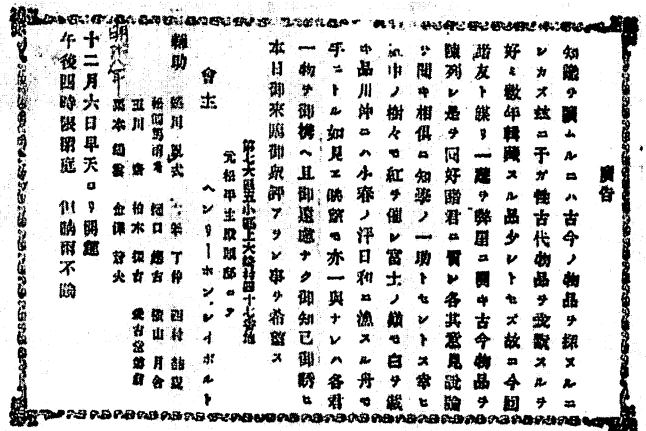 廣告
知識ヲ廣ムルニハ古今ノ物品ヲ探スルニ
シカズ玆ニ予ガ性古代物品ヲ玩觀スルヲ
好ミ數年輯藏スル品少シトセズ故ニ今回
諸友ト謀リ一莚ヲ弊屋ニ開キ古今物品ヲ
陳列シ是ヲ同好諸君ニ質シ各其意見說論
ヲ聞キ相俱ニ知學ノ一助トセントス幸ヒ
中ノ樹々モ紅ヲ催シ富士ノ嶺モ白ヲ戴
キ品川沖ニハ小春ノ浮日和ニ漁スル舟モ
手ニトル如見エ眺望モ亦一興ナレハ各君
一物ヲ御携ヘ且御遠慮ナク御知己御誘ヒ
本日御來臨御衆評アラン事ヲ希望ス
第七大區五小區上大崎村四十七番地
元松平主殿頭邸ニテ
會主 ヘンリーホン、シイボルト
輔助 蜷川 式 西村
松浦 樋口 橫山 月舍
玉川 齋 柏木
明治八年
十二月六日早天ヨリ開莚
午後四時限閉莚 但晴雨不論